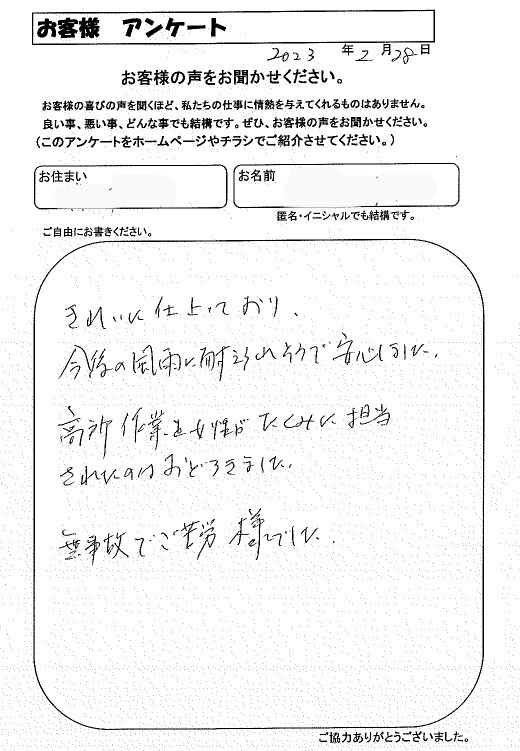 お客様 アンケート
2023 年 2 月 28 日
お客様の声をお聞かせください。
お客様の喜びの声を聞くほど、私たちの仕事に情熱を与えてくれるものはありません。
良い事、悪い事、どんな事でも結構です。ぜひ、お客様の声をお聞かせください。
(このアンケートをホームページやチラシでご紹介させてください。)
お住まい
お名前
匿名・イニシャルでも結構です。
ご自由にお書きください。
きれいに仕上っており、
今後の風雨に耐えられそうで安心しました。
高所作業を女性がたくみに担当
されたのはおどろきました。
無事故でご苦労様でした。
ご協力ありがとうございました。